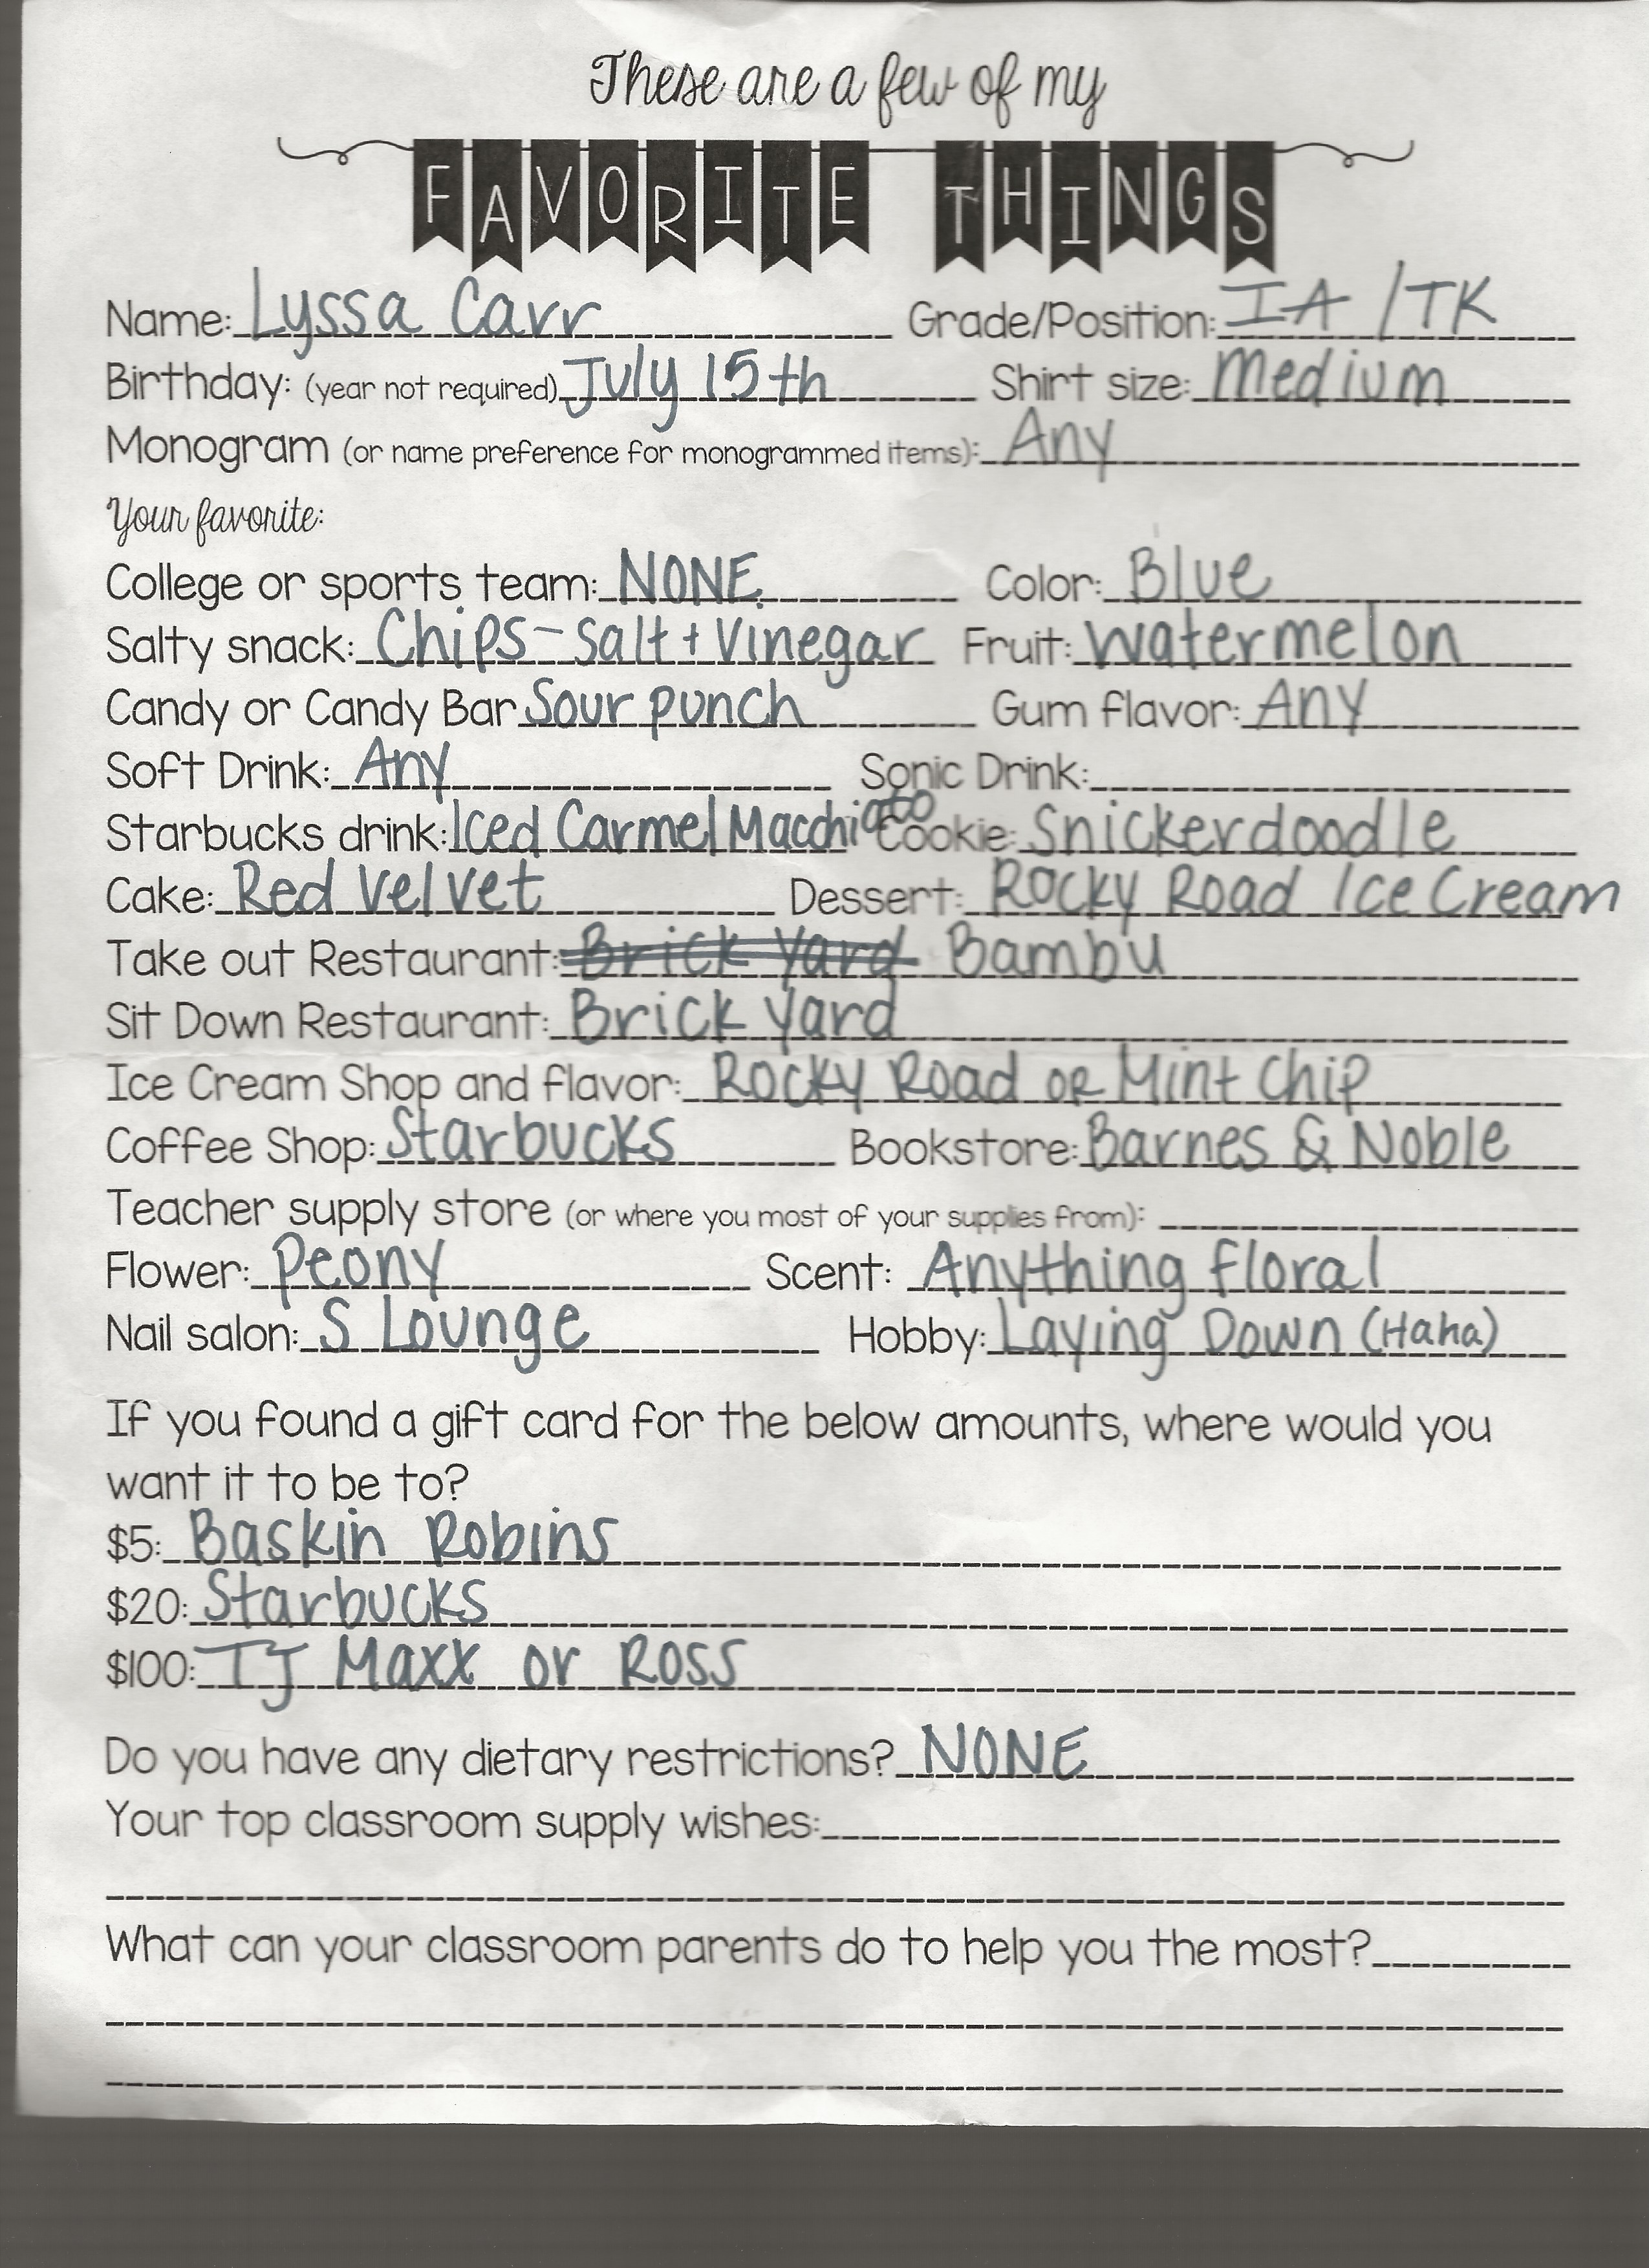 These are a few of my
FAVORITE THINGS
Name: Lyssa Carr Grade/Position: IA / TK
Birthday: (year not required) July 15th Shirt size: Medium
Monogram (or name preference for monogrammed items): Any
Your favorite:
College or sports team: NONE Color: Blue
Salty snack: Chips - Salt + Vinegar Fruit: Watermelon
Candy or Candy Bar Sour punch Gum flavor: Any
Soft Drink: Any Sonic Drink:
Starbucks drink: Iced Carmel Macchiato Cookie: Snickerdoodle
Cake: Red Velvet Dessert: Rocky Road Ice Cream
Take out Restaurant: Brick Yard Bambu
Sit Down Restaurant: Brick Yard
Ice Cream Shop and flavor: Rocky Road OR Mint Chip
Coffee Shop: Starbucks Bookstore: Barnes & Noble
Teacher supply store (or where you most of your supplies from):
Flower: Peony Scent: Anything floral
Nail salon: S Lounge Hobby: Laying Down (Haha)
If you found a gift card for the below amounts, where would you
want it to be to?
$5: Baskin Robins
$20: Starbucks
$100: TJ Maxx or Ross
Do you have any dietary restrictions? NONE
Your top classroom supply wishes:
What can your classroom parents do to help you the most?